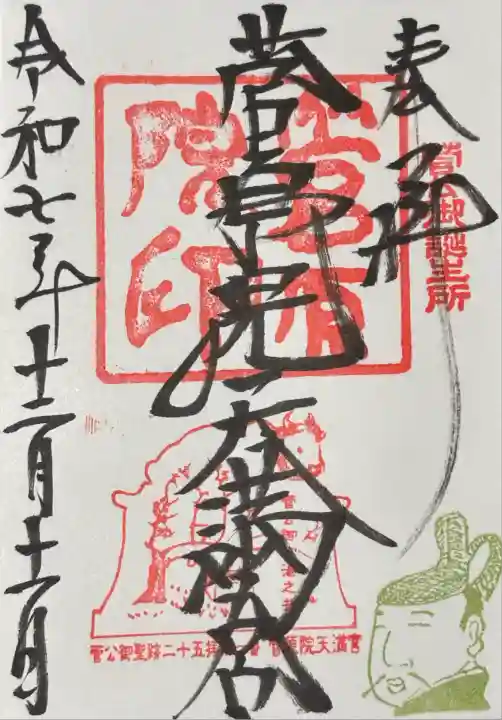 奉拝
菅公御誕生所
菅原院天満宮
菅原院印
令和七年十二月十一日
菅公御聖跡二十五拝第一番 菅原院天満宮